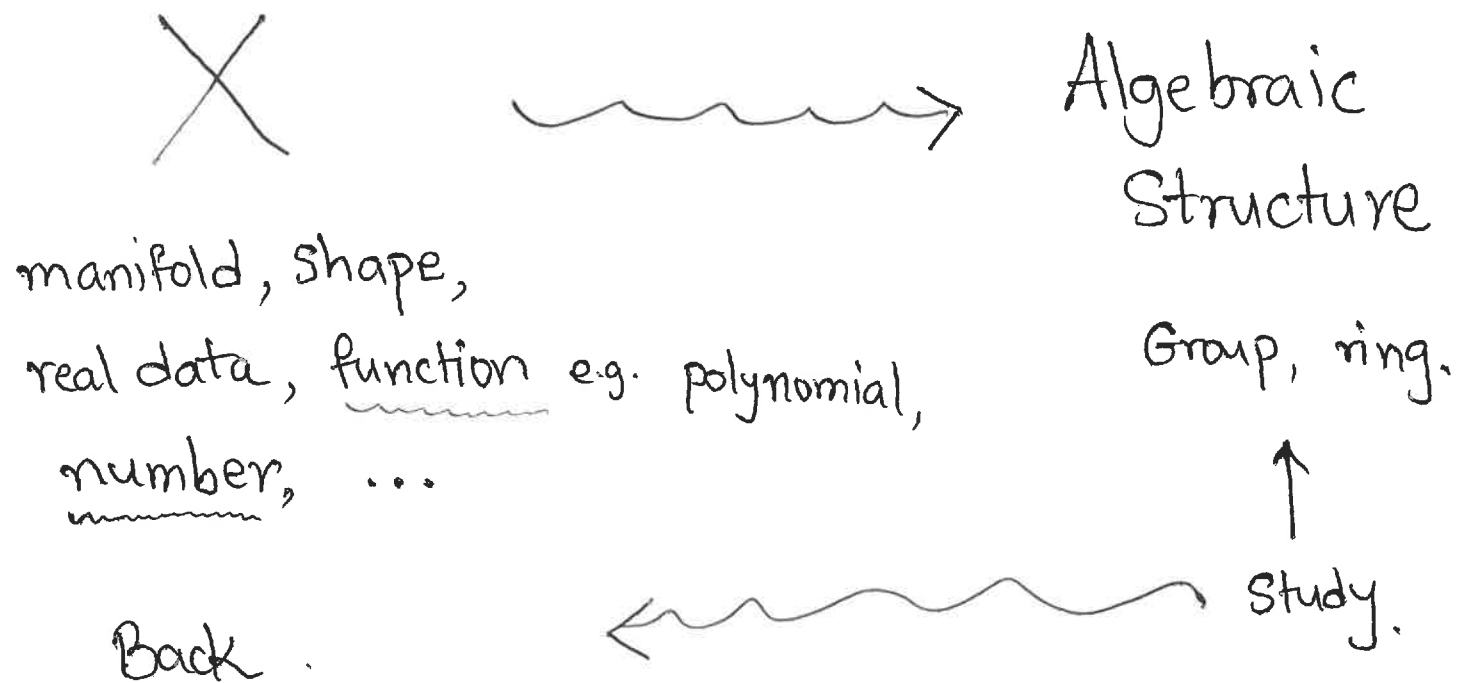 X Algebraic
Structure
manifold, shape,
real data, function e.g. polynomial,
Group, ring.
number, ...
Study.
Back.